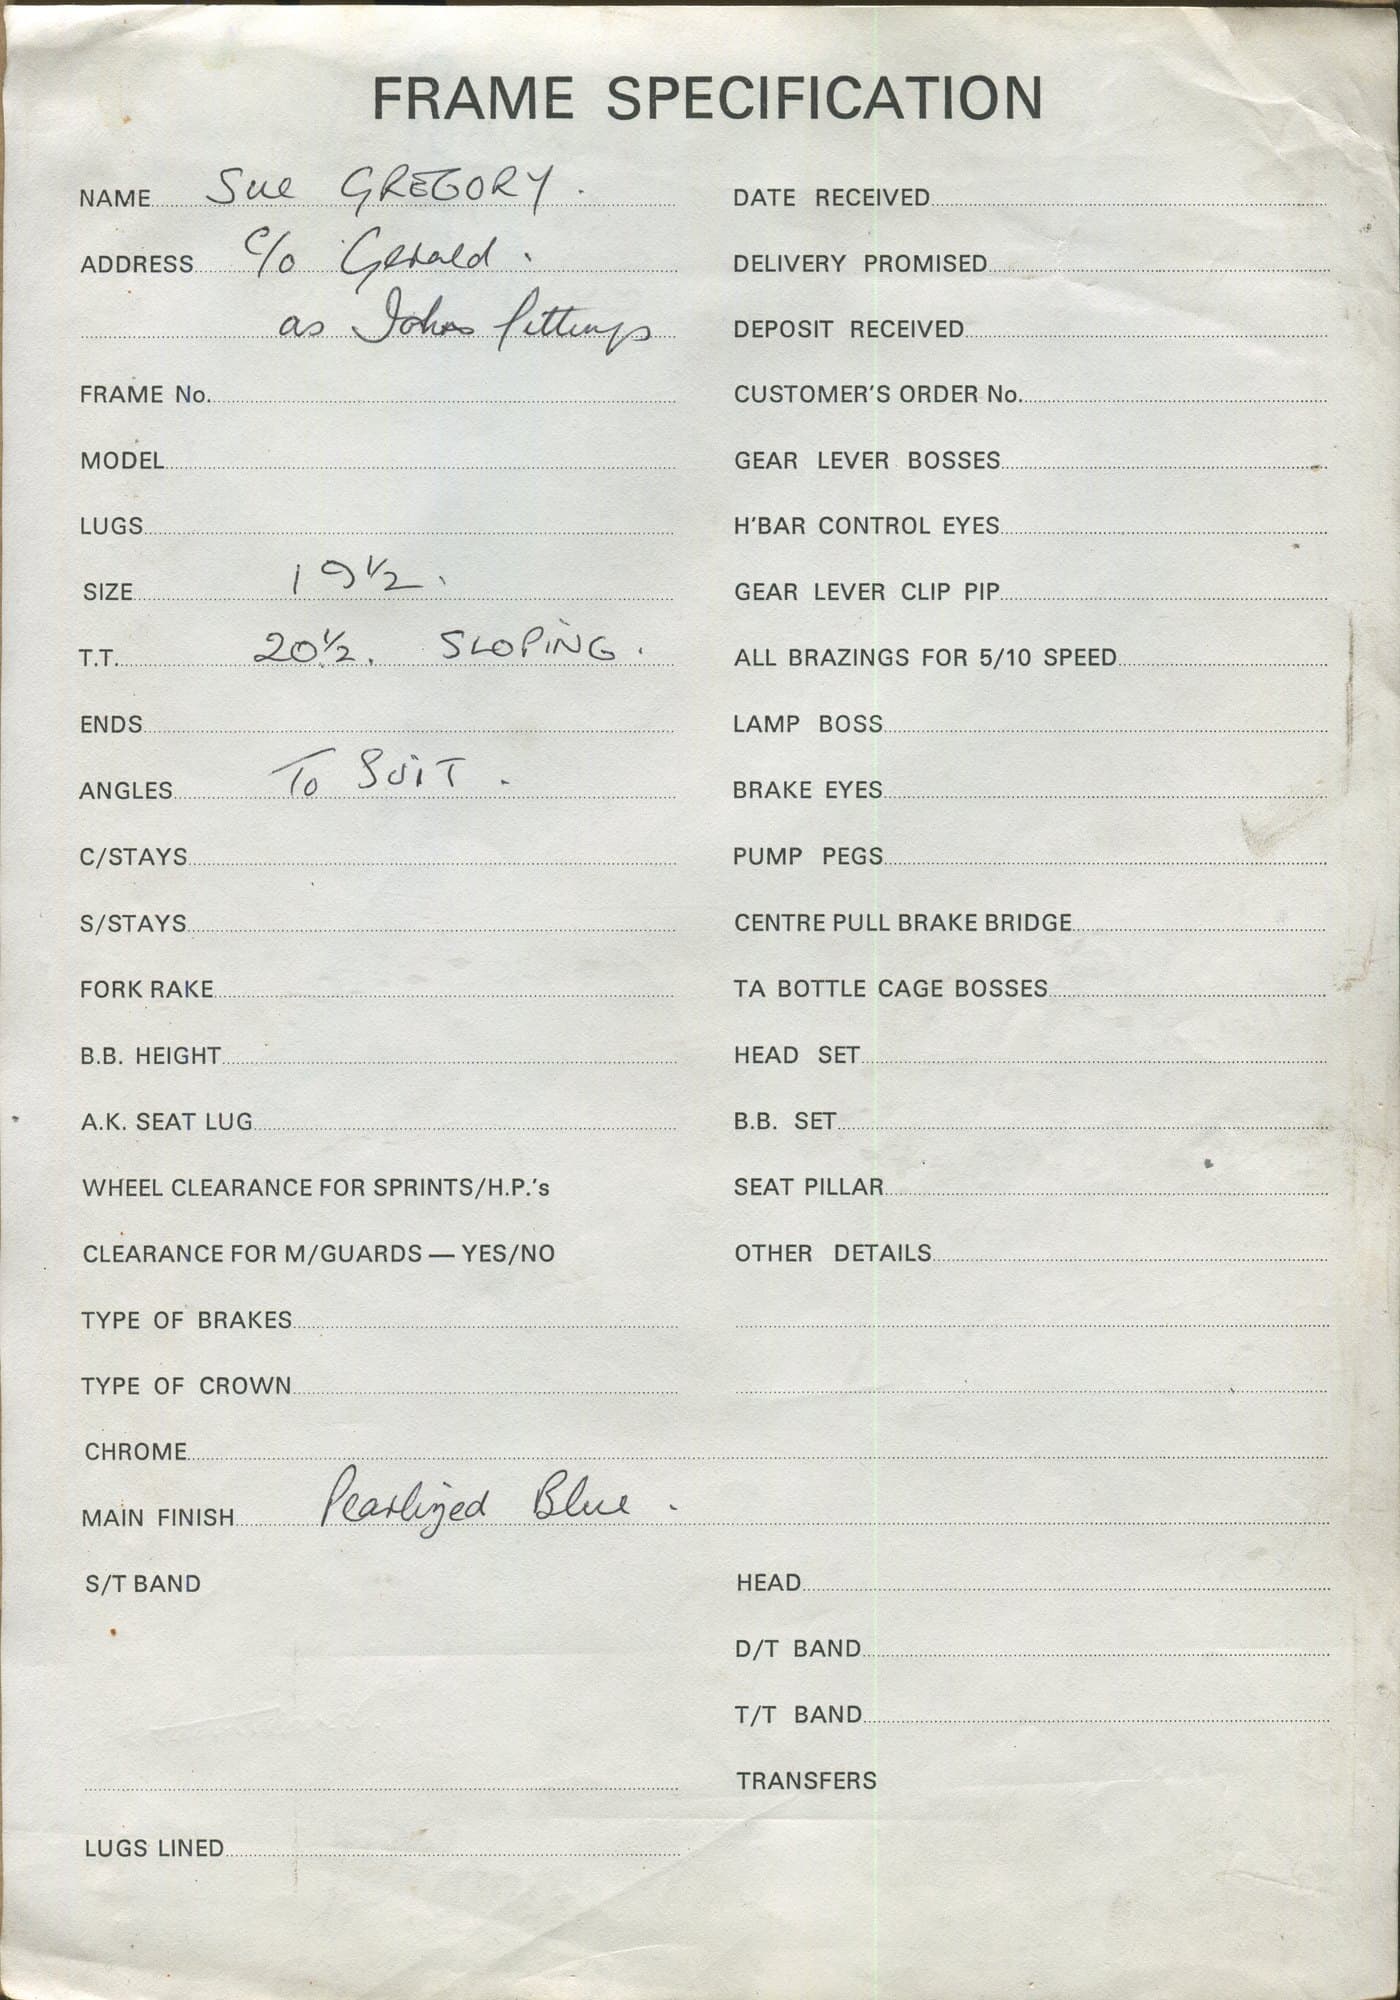 FRAME SPECIFICATION
NAME Sue GREGORY.
ADDRESS c/o Gerald.
as Johns fittings
FRAME No.
MODEL
LUGS
SIZE 19 1/2.
T.T. 20 1/2. SLOPING.
ENDS
ANGLES To SUIT.
C/STAYS
S/STAYS
FORK RAKE
B.B. HEIGHT
A.K. SEAT LUG
WHEEL CLEARANCE FOR SPRINTS/H.P.'s
CLEARANCE FOR M/GUARDS — YES/NO
TYPE OF BRAKES
TYPE OF CROWN
DATE RECEIVED
DELIVERY PROMISED
DEPOSIT RECEIVED
CUSTOMER'S ORDER No.
GEAR LEVER BOSSES
H'BAR CONTROL EYES
GEAR LEVER CLIP PIP
ALL BRAZINGS FOR 5/10 SPEED
LAMP BOSS
BRAKE EYES
PUMP PEGS
CENTRE PULL BRAKE BRIDGE
TA BOTTLE CAGE BOSSES
HEAD SET
B.B. SET
SEAT PILLAR
OTHER DETAILS
CHROME
MAIN FINISH Pearlized Blue.
S/T BAND
LUGS LINED
HEAD
D/T BAND
T/T BAND
TRANSFERS